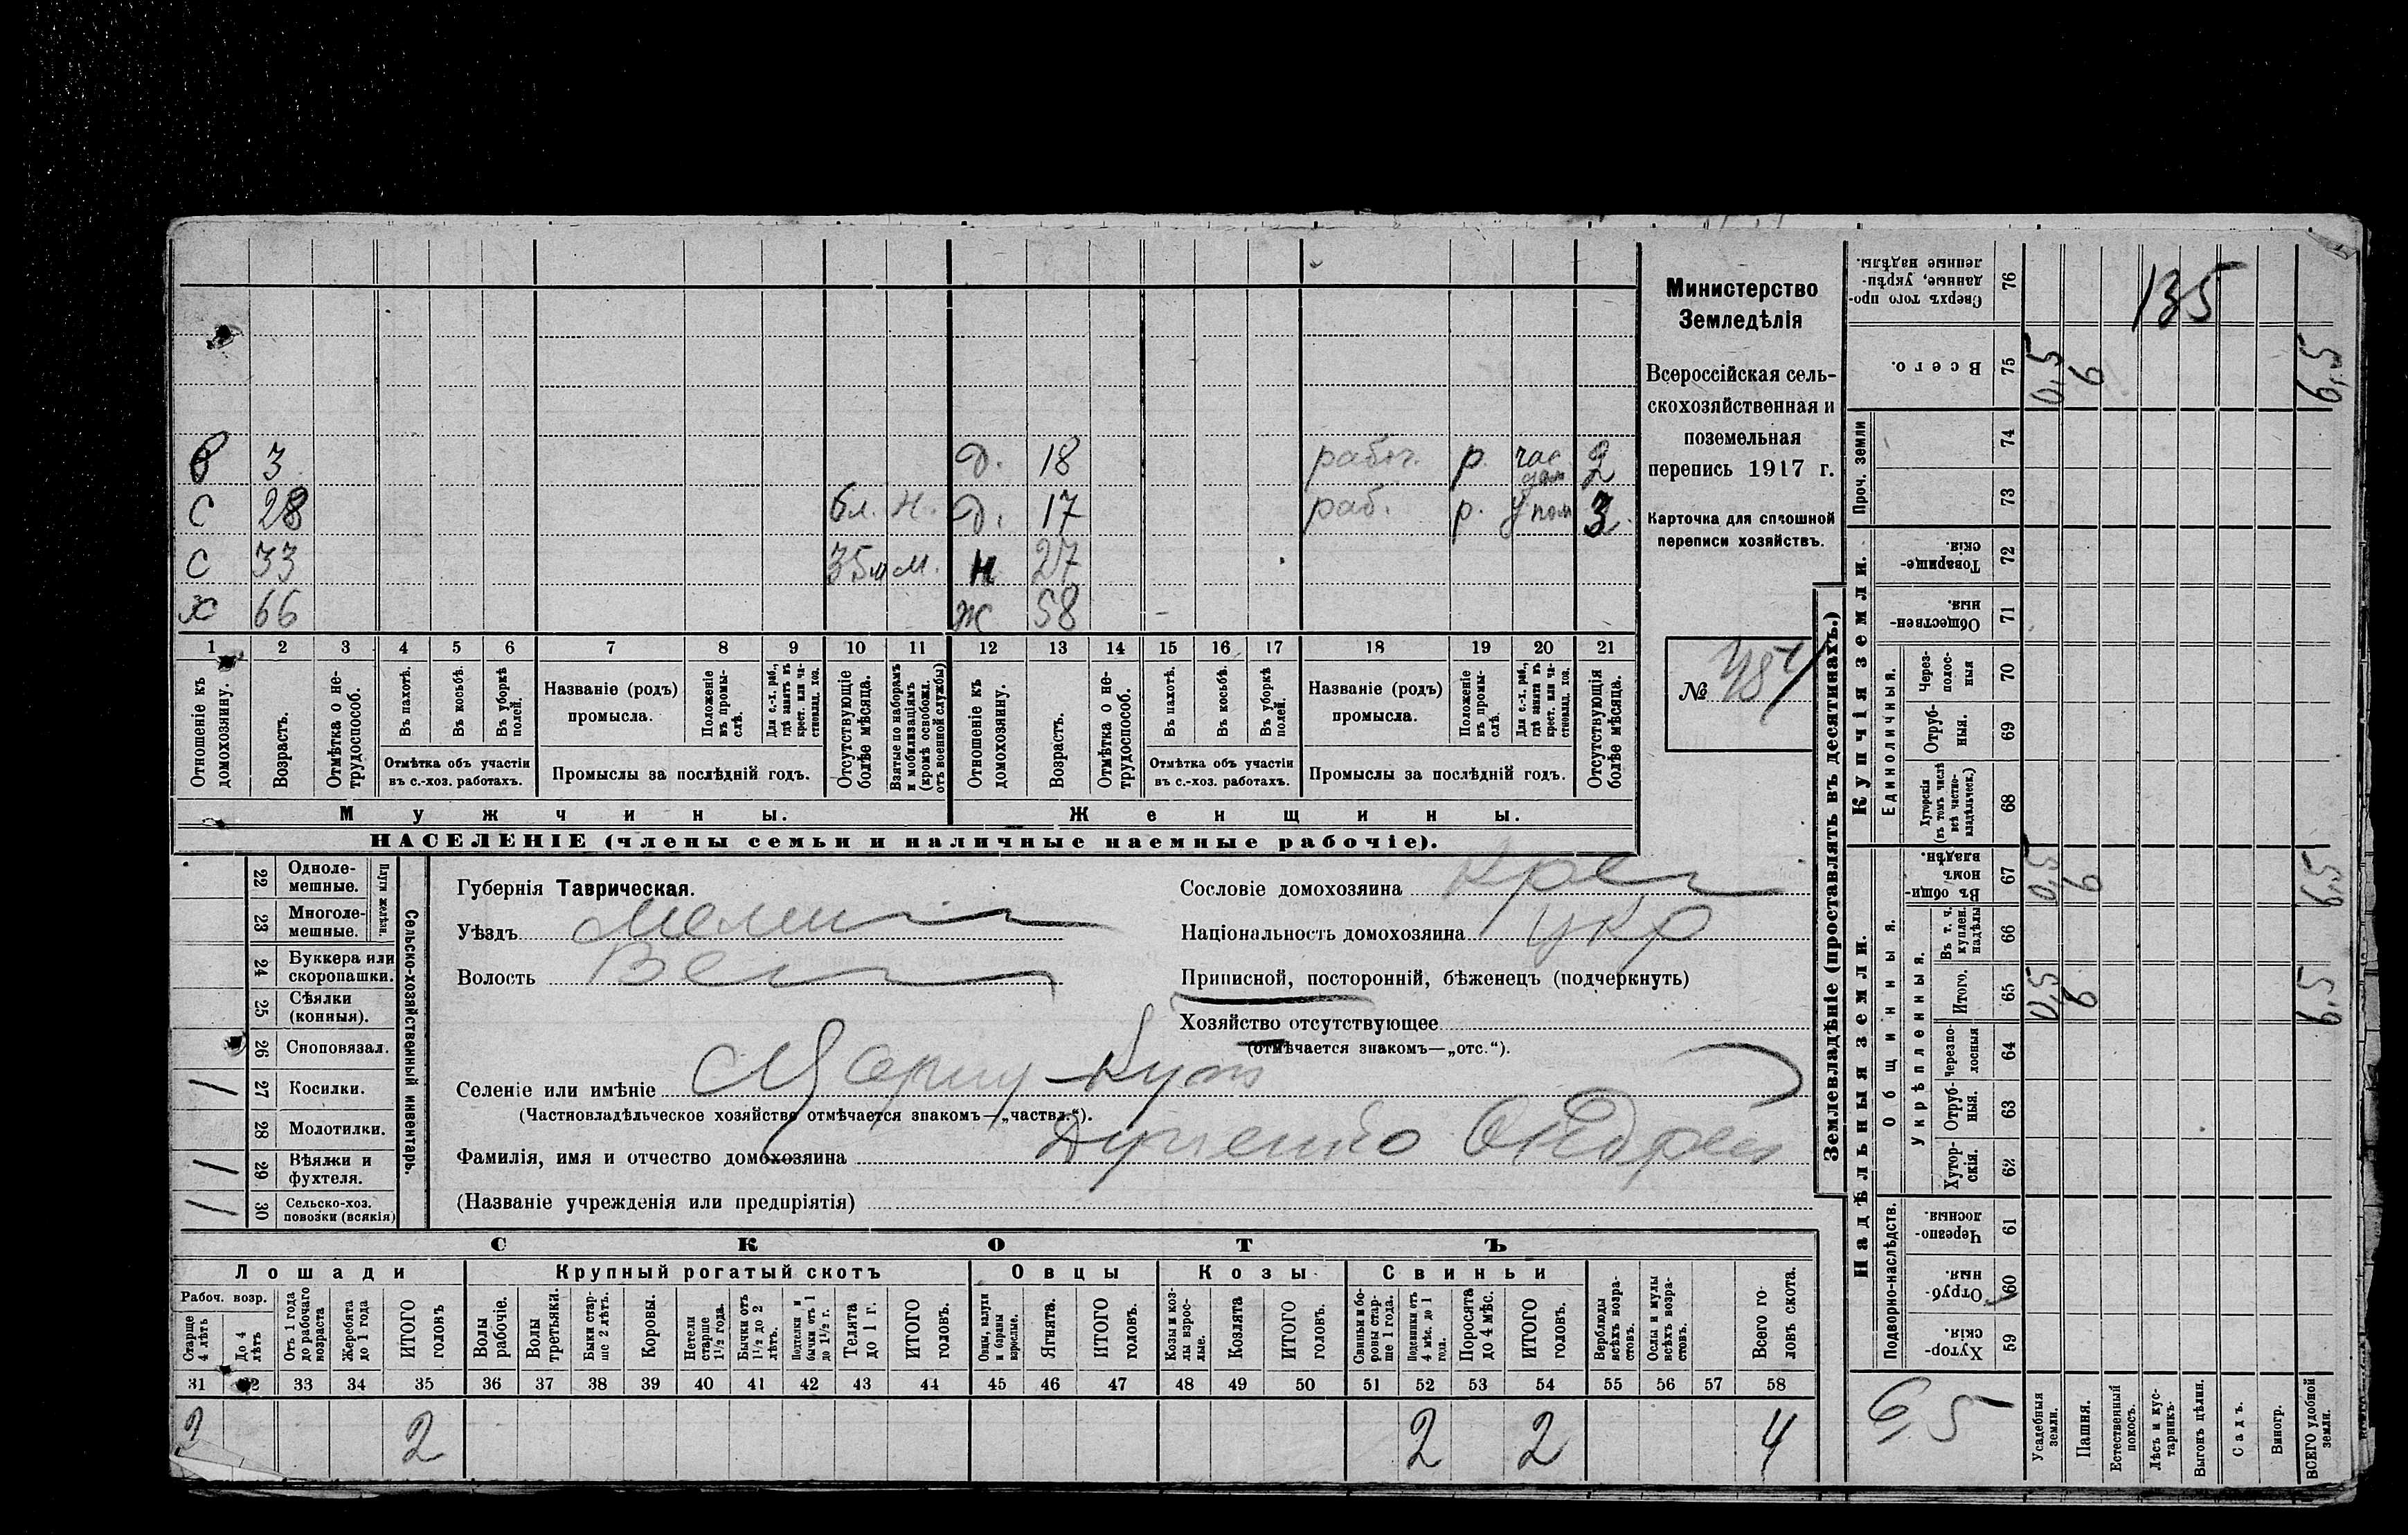 Министерство
Земледѣлія
Всероссійская сель-
скохозяйственная и
поземельная
перепись 1917 г.
Карточка для сплошной
переписи хозяйствъ.
№ 484
в 3 д. 18 работ. р. час дом 2
с 28 бл. н. д. 17 раб. р. у пом 3
с 33 35 м м. н 27
х 66 ж 58
1 2 3 4 5 6 7 8 9 10 11 12 13 14 15 16 17 18 19 20 21
Отношеніе къ домохозяину.
Возрастъ.
Отмѣтка о не-трудоспособ.
Въ пахотѣ.
Въ косьбѣ.
Въ уборкѣ полей.
Отмѣтка объ участіи въ с.-хоз. работахъ.
Названіе (родъ) промысла.
Положеніе въ промы-слѣ.
Для с.-х. раб., гдѣ занятъ въ крест. или ча-стновлад. хоз.
Промыслы за послѣдній годъ.
Отсутствующіе болѣе мѣсяца.
Взятые по наборамъ и мобилизаціямъ (кромѣ освобожд. отъ военной службы)
Отношеніе къ домохозяину.
Возрастъ.
Отмѣтка о не-трудоспособ.
Въ пахотѣ.
Въ косьбѣ.
Въ уборкѣ полей.
Отмѣтка объ участіи въ с.-хоз. работахъ.
Названіе (родъ) промысла.
Положеніе въ промы-слѣ.
Для с.-х. раб., гдѣ занята въ крест. или ча-стновлад. хоз.
Промыслы за послѣдній годъ.
Отсутствующія болѣе мѣсяца.
Мужчины. Женщины.
НАСЕЛЕНІЕ (члены семьи и наличные наемные рабочіе).
22 Одноле-мешные.
23 Многоле-мешные.
Плуги желѣзн.
24 Буккера или скоропашки.
25 Сѣялки (конныя).
26 Сноповязал.
27 Косилки. /
28 Молотилки.
29 Вѣялки и фухтеля. /
30 Сельско-хоз. повозки (всякія) /
Сельско-хозяйственный инвентарь.
Губернія Таврическая.
Уѣздъ Мелит
Волость Вес
Сословіе домохозяина Крест
Національность домохозяина укр
Приписной, посторонній, бѣженецъ (подчеркнуть)
Хозяйство отсутствующее
(отмѣчается знакомъ—„отс.“).
Селеніе или имѣніе Царицу-Кут
(Частновладѣльческое хозяйство отмѣчается знакомъ—„частвл.“).
Фамилія, имя и отчество домохозяина Андрей
(Названіе учрежденія или предпріятія)
СКОТЪ
Лошади Крупный рогатый скотъ Овцы Козы Свиньи
Рабоч. возр.
Старше 4 лѣтъ
До 4 лѣтъ
Отъ 1 года до рабочаго возраста
Жеребята до 1 года
ИТОГО головъ
Волы рабочіе.
Волы третьяки.
Быки стар-ше 2 лѣтъ.
Коровы.
Нетели старше 1½ года.
Бычки отъ 1½ до 2 лѣтъ.
Подтелки и бычки отъ 1 до 1½ г.
Телята до 1 г.
ИТОГО головъ.
Овцы, валухи и бараны взрослые.
Ягнята.
ИТОГО головъ.
Козы и коз-лы взрос-лые.
Козлята
ИТОГО головъ.
Свиньи и бо-ровы стар-ше 1 года.
Подсвинки отъ 4 мѣс. до 1 года.
Поросята до 4 мѣс.
ИТОГО головъ.
Верблюды всѣхъ возра-стовъ.
Ослы и мулы всѣхъ возра-стовъ.
Всего го-ловъ скота.
31 32 33 34 35 36 37 38 39 40 41 42 43 44 45 46 47 48 49 50 51 52 53 54 55 56 57 58
2 2 2 2 4
Землевладѣніе (проставлять въ десятинахъ.)
Надѣльныя земли. Купчія земли. Проч. земли
Подворно-наслѣдств. Общинныя.
Укрѣпленныя. Единоличныя.
Сверхъ того про-данные, укрѣп-ленные надѣлы. 76 135
Всего. 75 0,5 6 6,5
74
73
Товарище-скія. 72
Обществен-ныя. 71
Через-полос-ныя 70
Отруб-ныя. 69
Хуторскія (въ томъ числѣ всѣ частно-владѣльческ.) 68
Въ общи-номъ владѣн. 67 0,5 6 6,5
Въ т. ч. куплен. надѣлы 66
Итого. 65 0,5 6 6,5
Черезпо-лосныя 64
Отруб-ныя. 63
Хутор-скія. 62
Черезпо-лосныя. 61
Отруб-ныя. 60
Хутор-скія. 59
6 5
Усадебныя земли.
Пашня.
Естественный покосъ.
Лѣсъ и кус-тарникъ.
Выгонъ цѣлин.
Садъ.
Виногр.
ВСЕГО удобной земли.